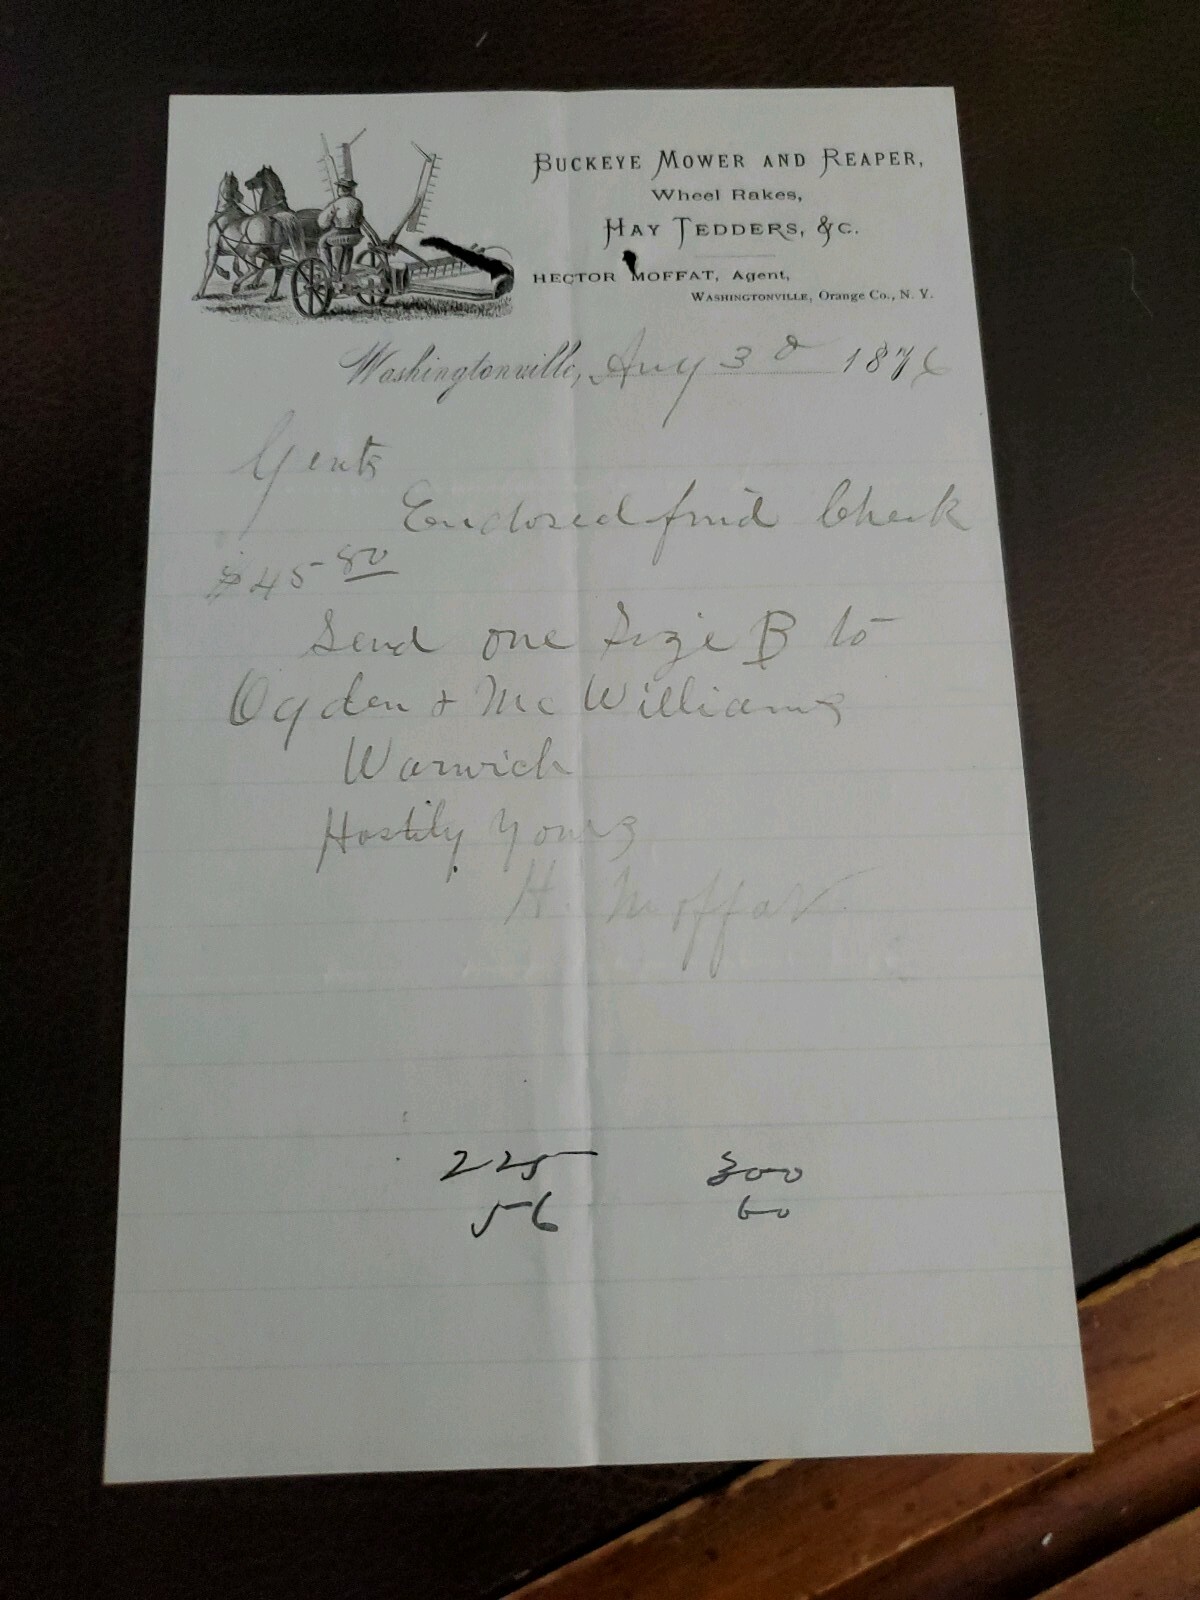 BUCKEYE MOWER AND REAPER,
Wheel Rakes,
HAY TEDDERS, &C.
HECTOR MOFFAT, Agent,
WASHINGTONVILLE, Orange Co., N. Y.
Washingtonville, Aug 3d 1876
Gents
Enclosed find Check
$45 80
Send one Size B to
Ogden & Mc Williams
Warwick
Hastily Yours
H. Moffat
225 300
56 60